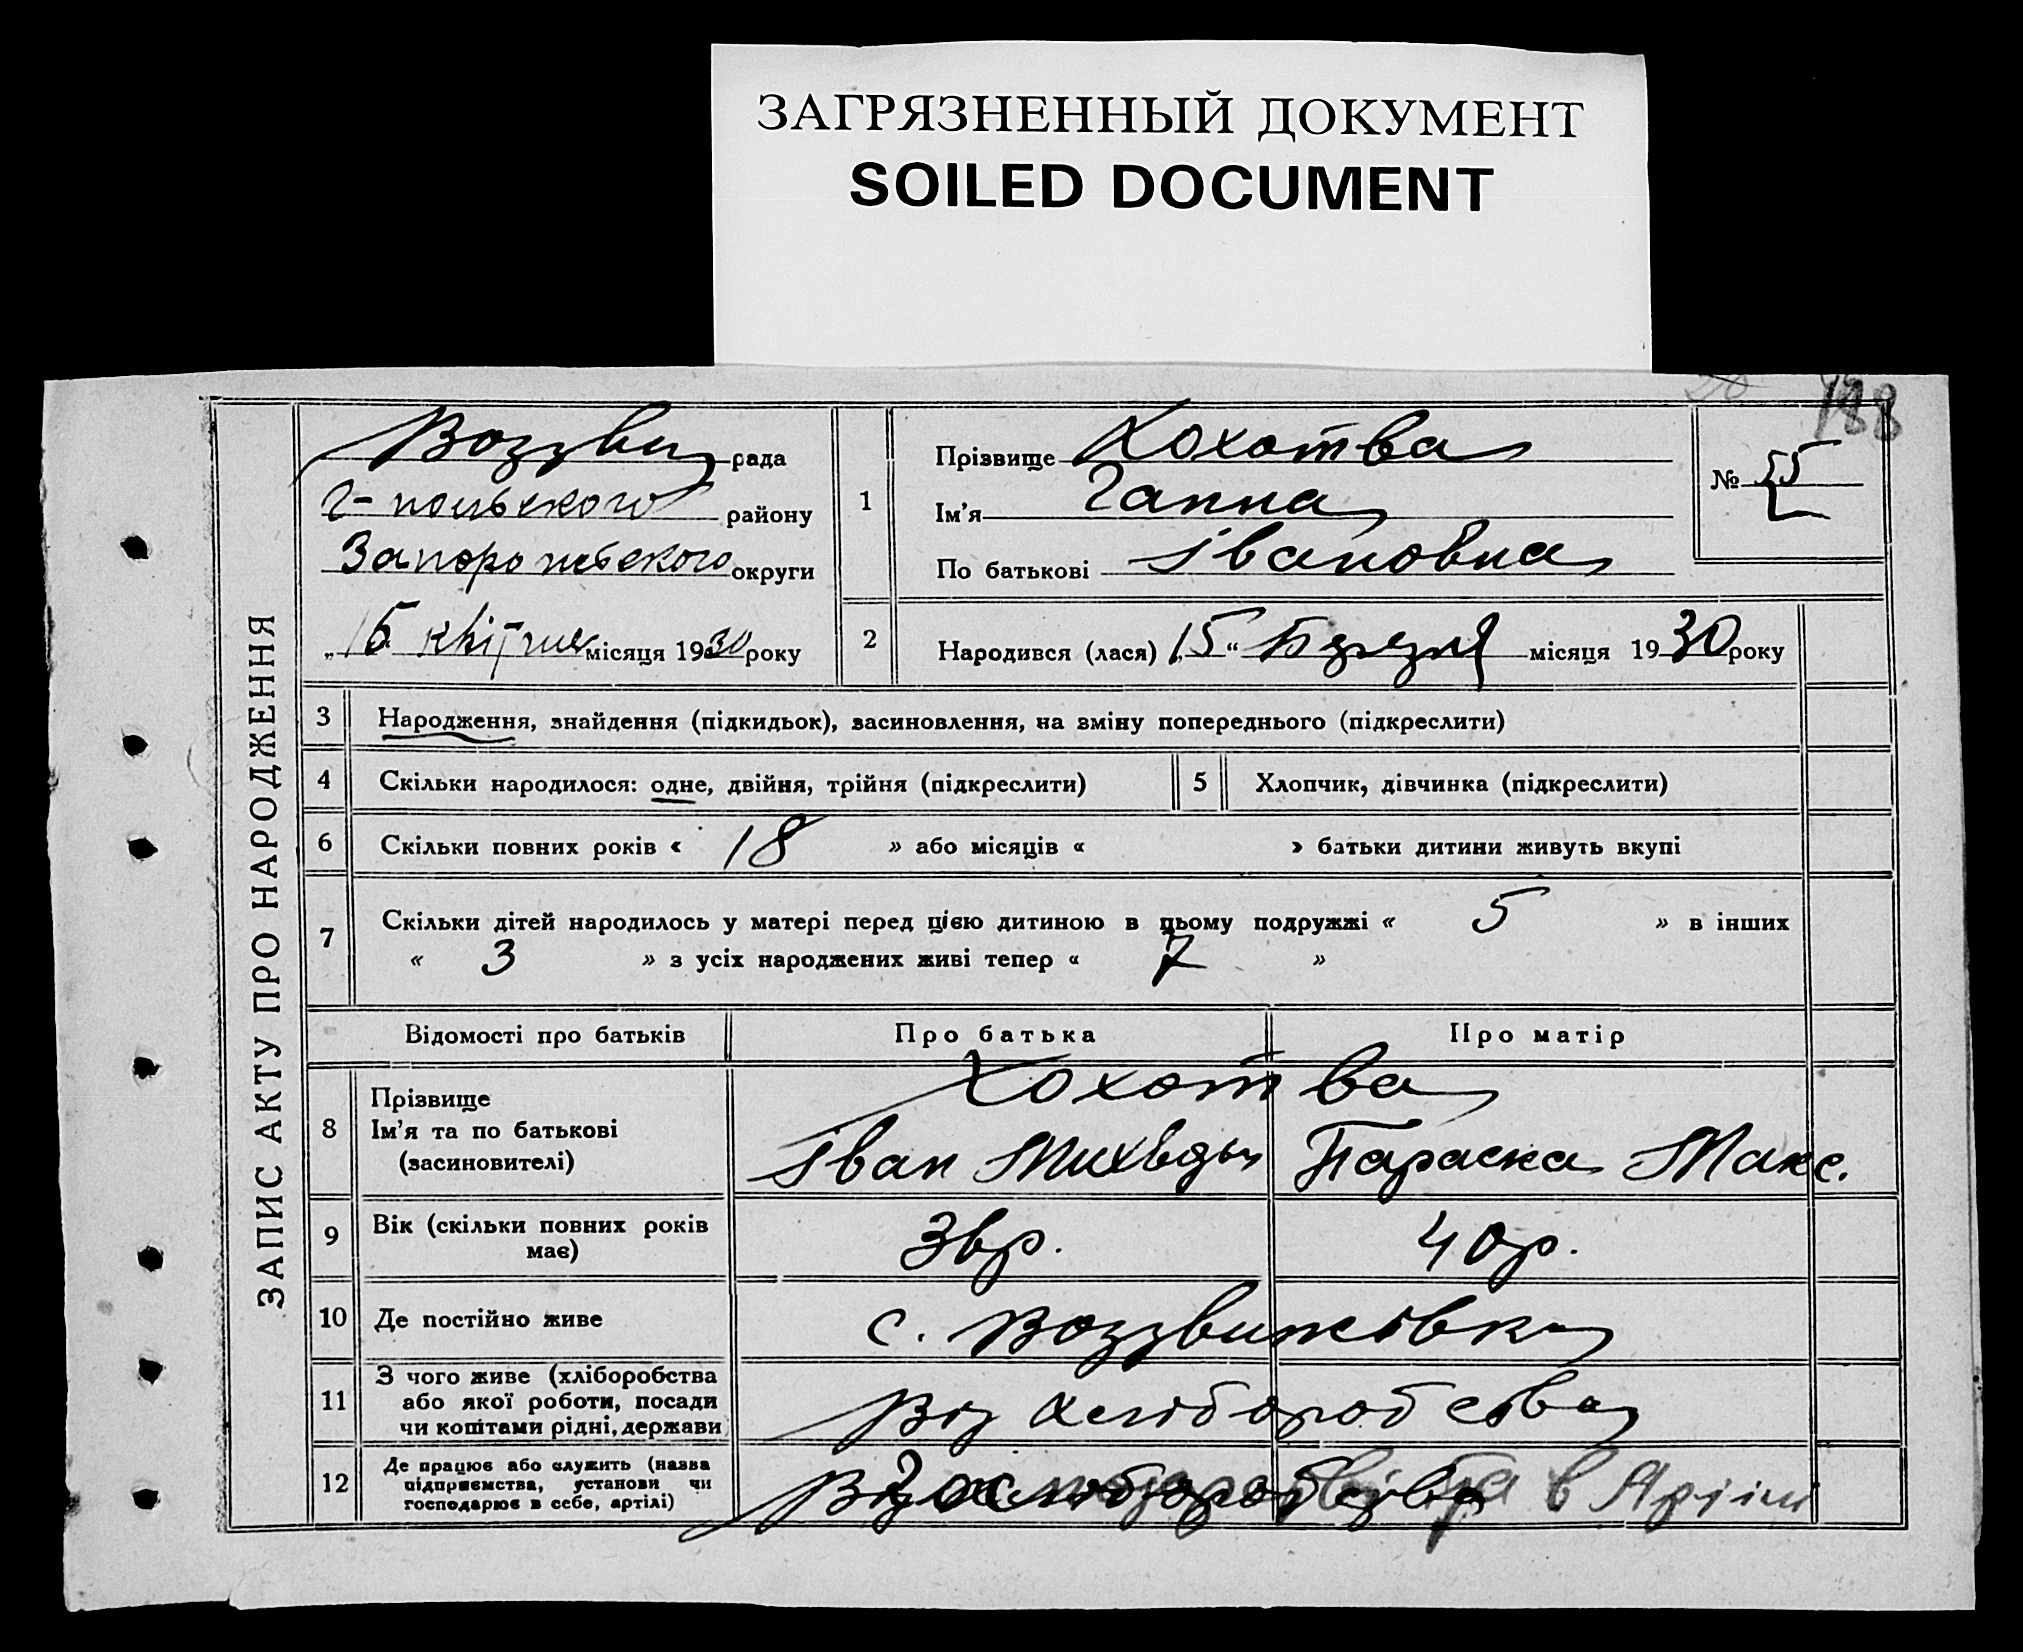 ЗАГРЯЗНЕННЫЙ ДОКУМЕНТ
SOILED DOCUMENT
188
ЗАПИС АКТУ ПРО НАРОДЖЕННЯ
Воздви рада
Г-польского району
Запоро округи
„16 квітня місяця 1930 року
1
Прізвище Хохотва
Ім'я Ганна
По батькові Івановна
№ 55
2
Народився (лася) „15“ Березня місяця 1930 року
3 Народження, знайдення (підкидьок), засиновлення, на зміну попереднього (підкреслити)
4 Скільки народилося: одне, двійня, трійня (підкреслити)
5 Хлопчик, дівчинка (підкреслити)
6 Скільки повних років « 18 » або місяців « » батьки дитини живуть вкупі
7 Скільки дітей народилось у матері перед цією дитиною в цьому подружжі « 5 » в інших
« 3 » з усіх народжених живі тепер « 7 »
Відомості про батьків Про батька Про матір
8 Прізвище
Ім'я та по батькові
(засиновителі)
Хохотва
Іван Параска Макс.
9 Вік (скільки повних років
має)
36р. 40р.
10 Де постійно живе с. Воздвижівка
11 З чого живе (хліборобства
або якої роботи, посади
чи коштами рідні, держави
Від хліборобства
12 Де працює або служить (назва
підприємства, установи чи
господарює в себе, артілі)
Від хліборобства в Аріли